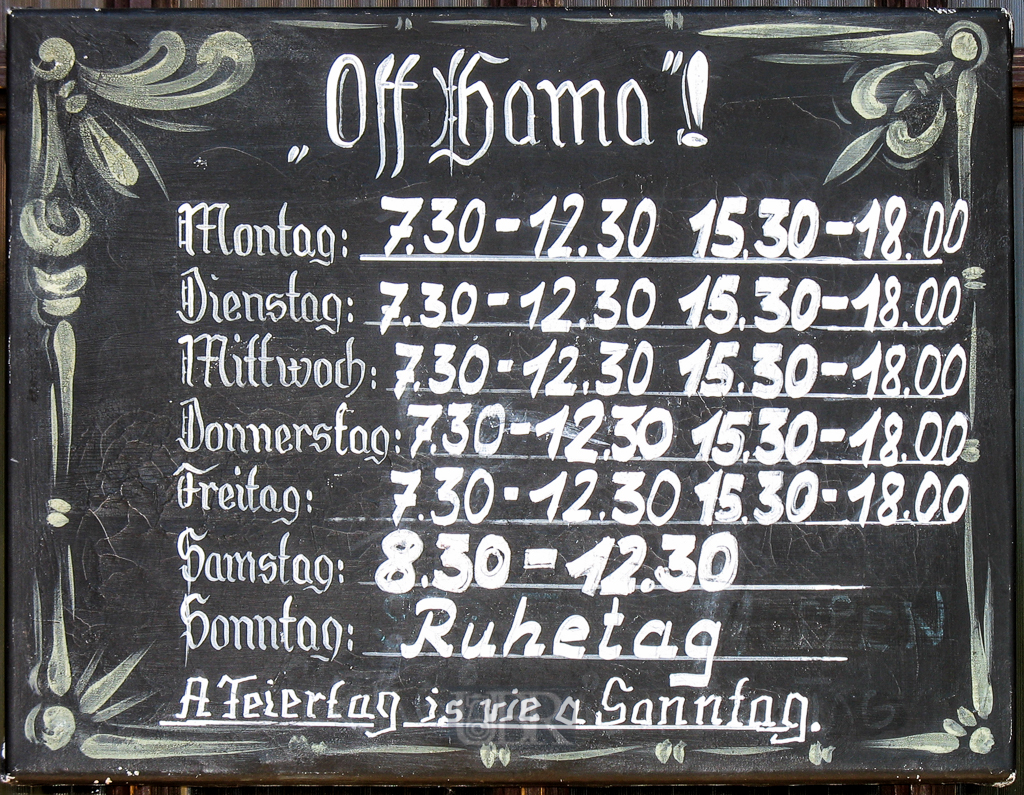 „Off Hama"!
Montag: 7.30-12.30 15.30-18.00
Dienstag: 7.30-12.30 15.30-18.00
Mittwoch: 7.30-12.30 15.30-18.00
Donnerstag: 7.30-12.30 15.30-18.00
Freitag: 7.30-12.30 15.30-18.00
Samstag: 8.30-12.30
Sonntag: Ruhetag
A Feiertag is wie a Sonntag.